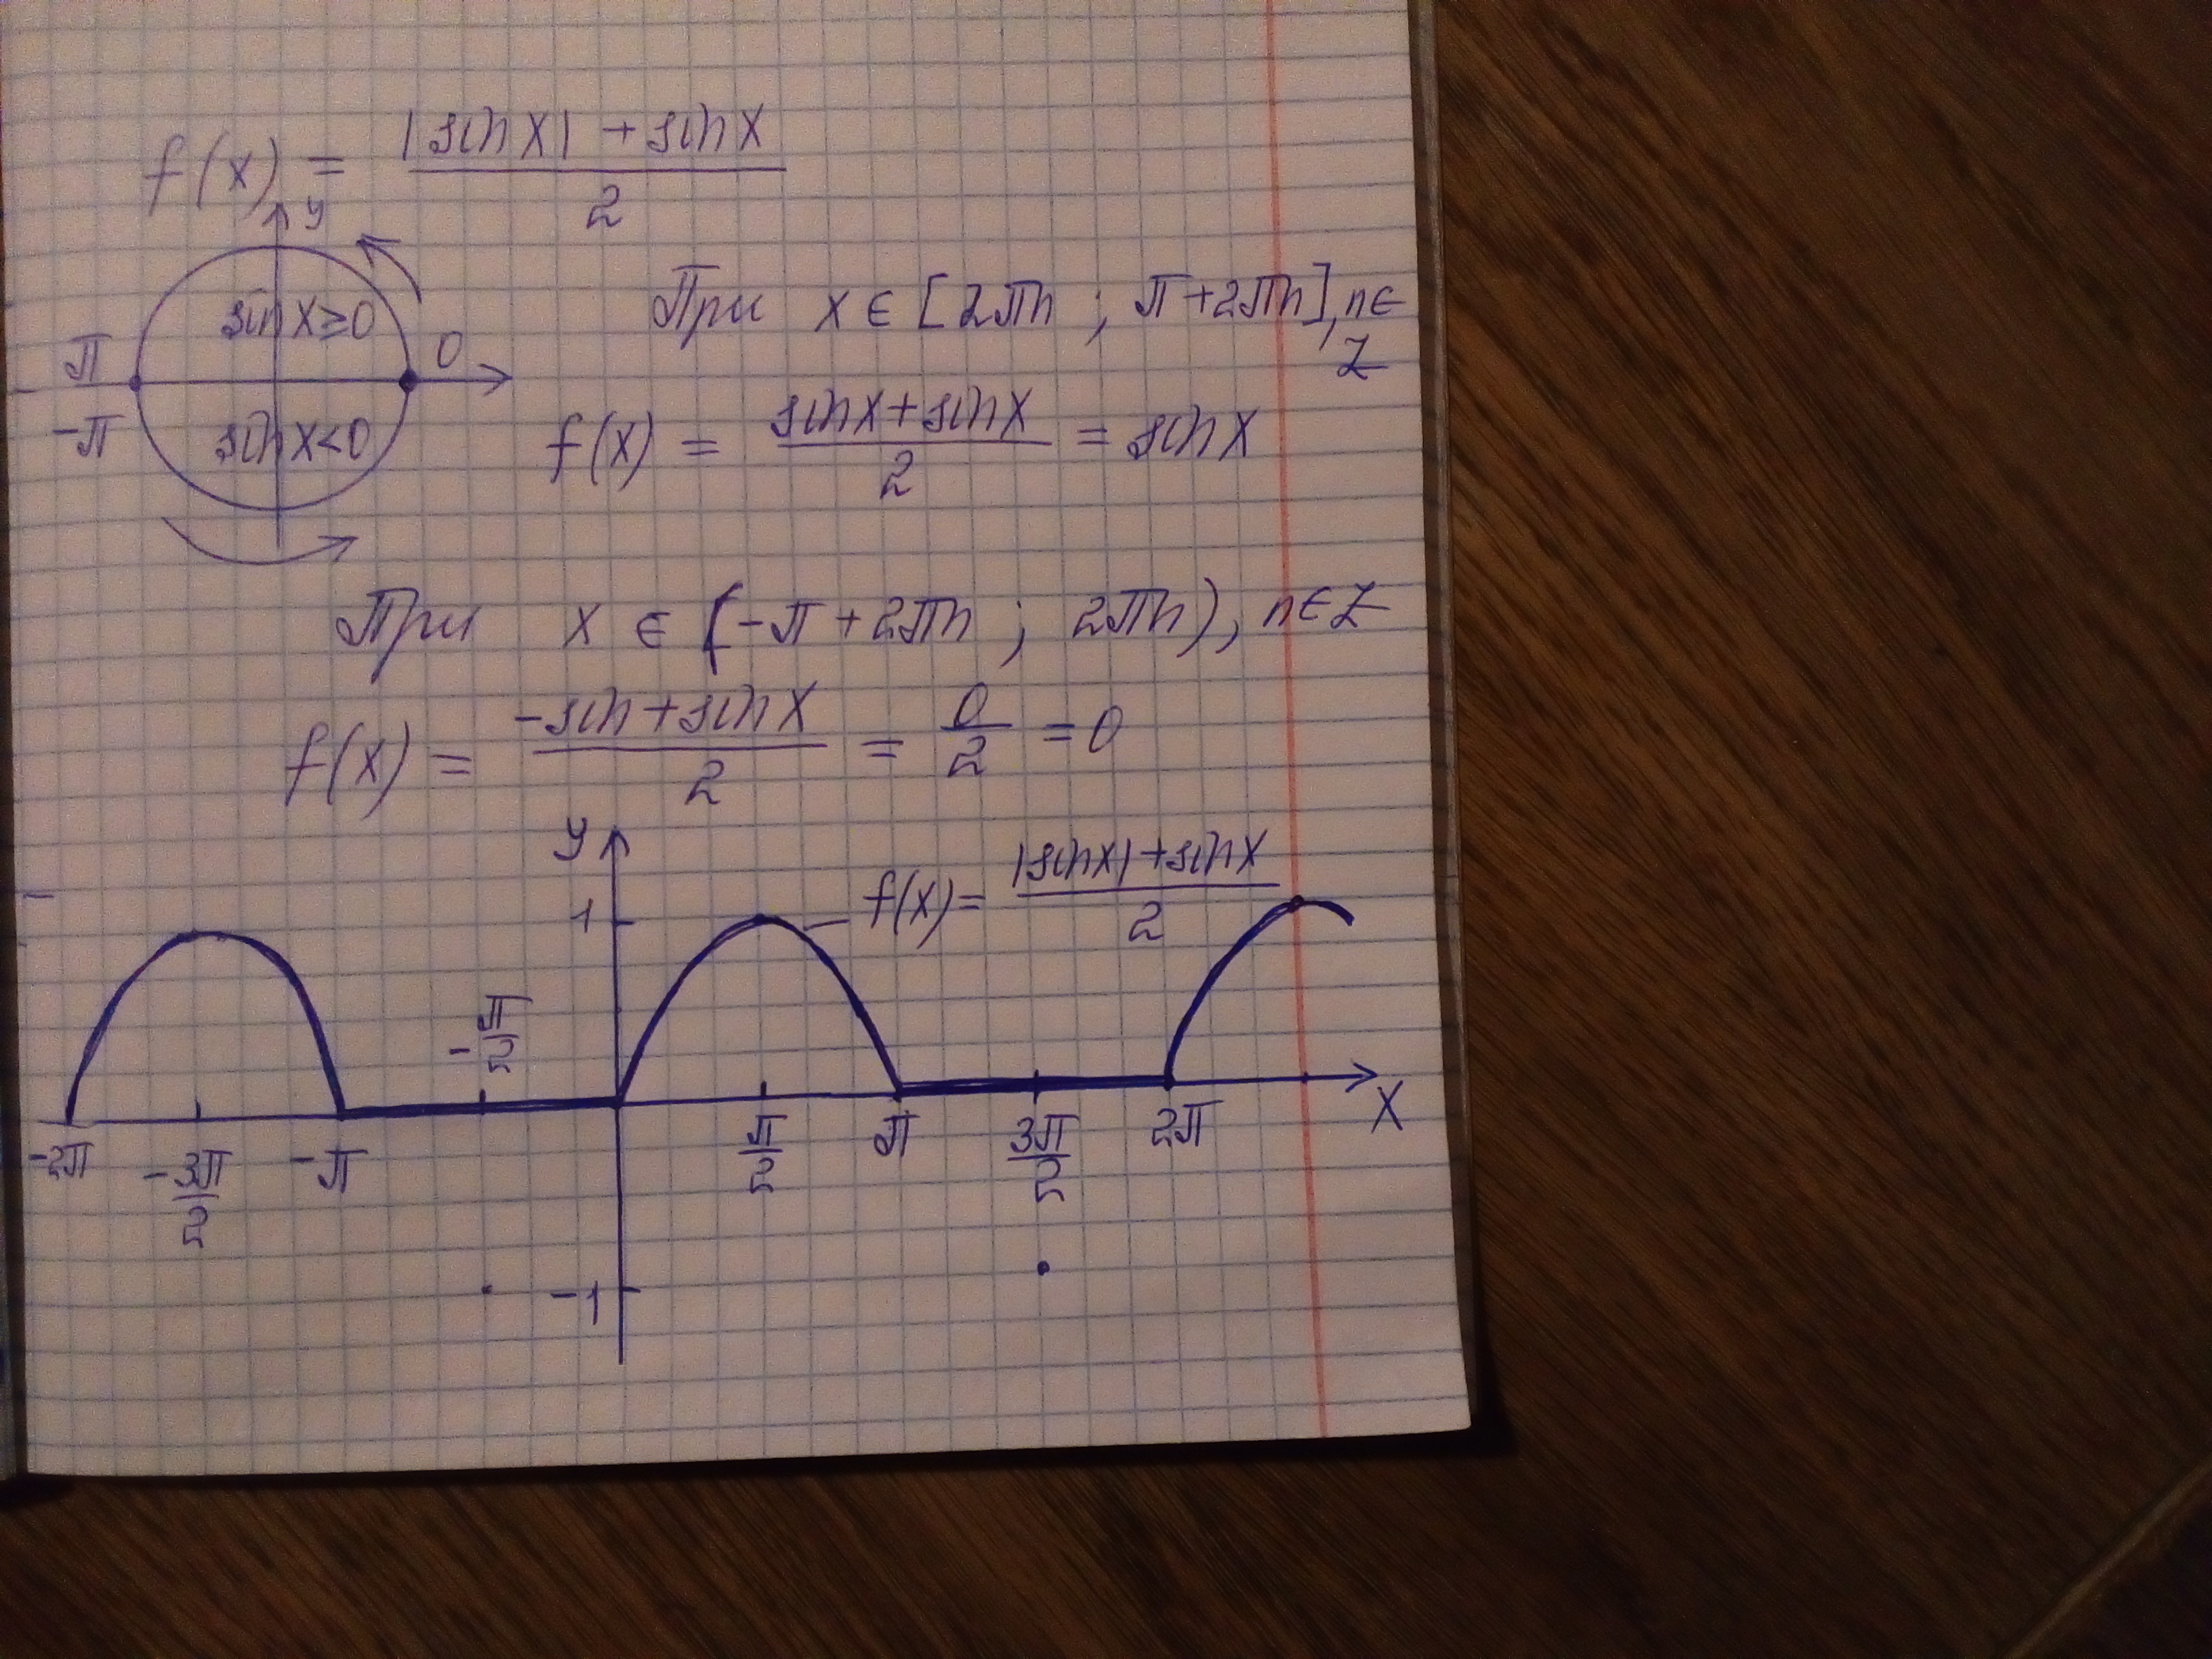 f(x) = (|sin x| + sin x)/2
y
sin x ≥ 0
π 0
-π
sin x < 0
При x ∈ [2πn ; π + 2πn], n ∈ Z
f(x) = (sin x + sin x)/2 = sin x
При x ∈ (-π + 2πn ; 2πn), n ∈ Z
f(x) = (-sin + sin x)/2 = 0/2 = 0
y
1 f(x) = (|sin x| + sin x)/2
-π/2
-2π -3π/2 -π π/2 π 3π/2 2π x
-1